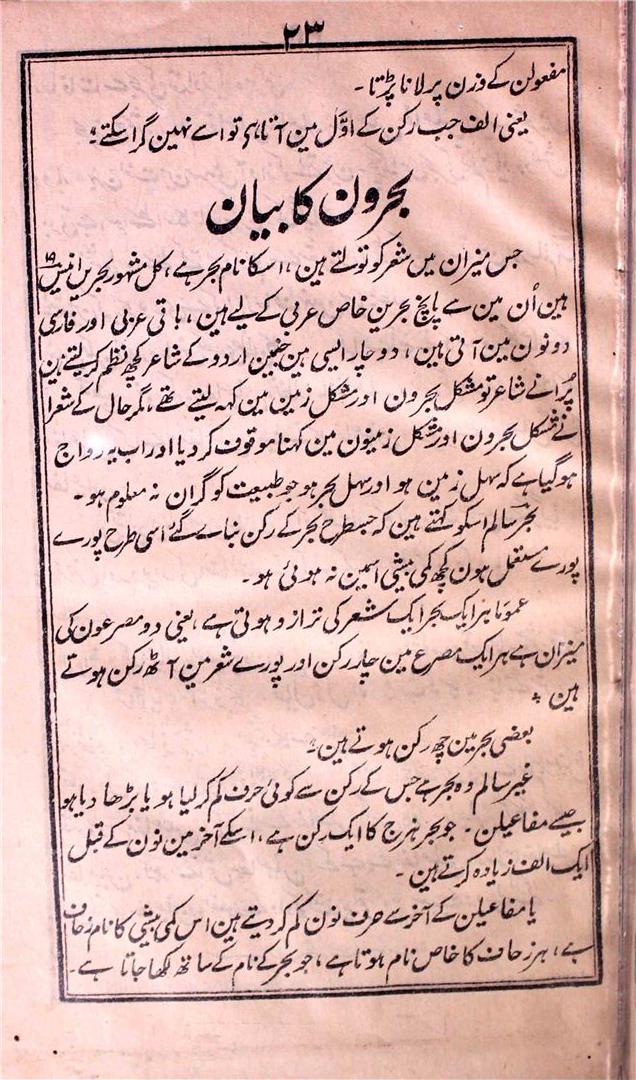 ۲۳
مفعولن کے وزن پر لانا پڑتا۔
یعنی الف جب رکن کے اوّل مین آتا ہی تو اسے نہین گرا سکتے؛
بحرون کا بیان
جس میزان میں شعر کو تولتے ہین، اسکا نام بحر ہے، کل مشہور بحریں انیس ۱۹
ہین اُن مین سے پانچ بحرین خاص عربی کے لیے ہین، باقی عربی اور فارسی
دونون مین آتی ہین، دو چار ایسی ہین جنھین اردو کے شاعر کچھ نظم کر لیتے ہین
پُرانے شاعر تو مشکل بحرون اور مشکل زمین مین کہہ لیتے تھے، مگر حال کے شعرا
نے مشکل بحرون اور مشکل زمینون مین کہنا موقوف کر دیا اور اب یہ رواج
ہو گیا ہے کہ سہل زمین ہو اور سہل بحر ہو جو طبیعت کو گران نہ معلوم ہو۔
بحر سالم اسکو کہتے ہین کہ جسطرح بحر کے رکن بناے گئے اسی طرح پورے
پورے مستعمل ہون کچھ کمی بیشی اسمین نہ ہوئی ہو۔
عموماً ہر ایک بحر ایک شعر کی ترازو ہوتی ہے، یعنی دو مصرعون کی
میزان ہے ہر ایک مصرع مین چار رکن اور پورے شعر مین آٹھ رکن ہوتے
ہین؛
بعضی بحر مین چھ رکن ہوتے ہین؛
غیر سالم وہ بحر ہے جس کے رکن سے کوئی حرف کم کر لیا ہو یا بڑھا دیا ہو
جیسے مفاعیلن۔ جو بحر ہزج کا ایک رکن ہے، اسکے آخر مین نون کے قبل
ایک الف زیادہ کرتے ہین۔
یا مفاعیلن کے آخر سے حرف نون کم کر دیتے ہین اس کمی بیشی کا نام زحاف
ہے، ہر زحاف کا خاص نام ہوتا ہے، جو بحر کے نام کے ساتھ لکھا جاتا ہے۔